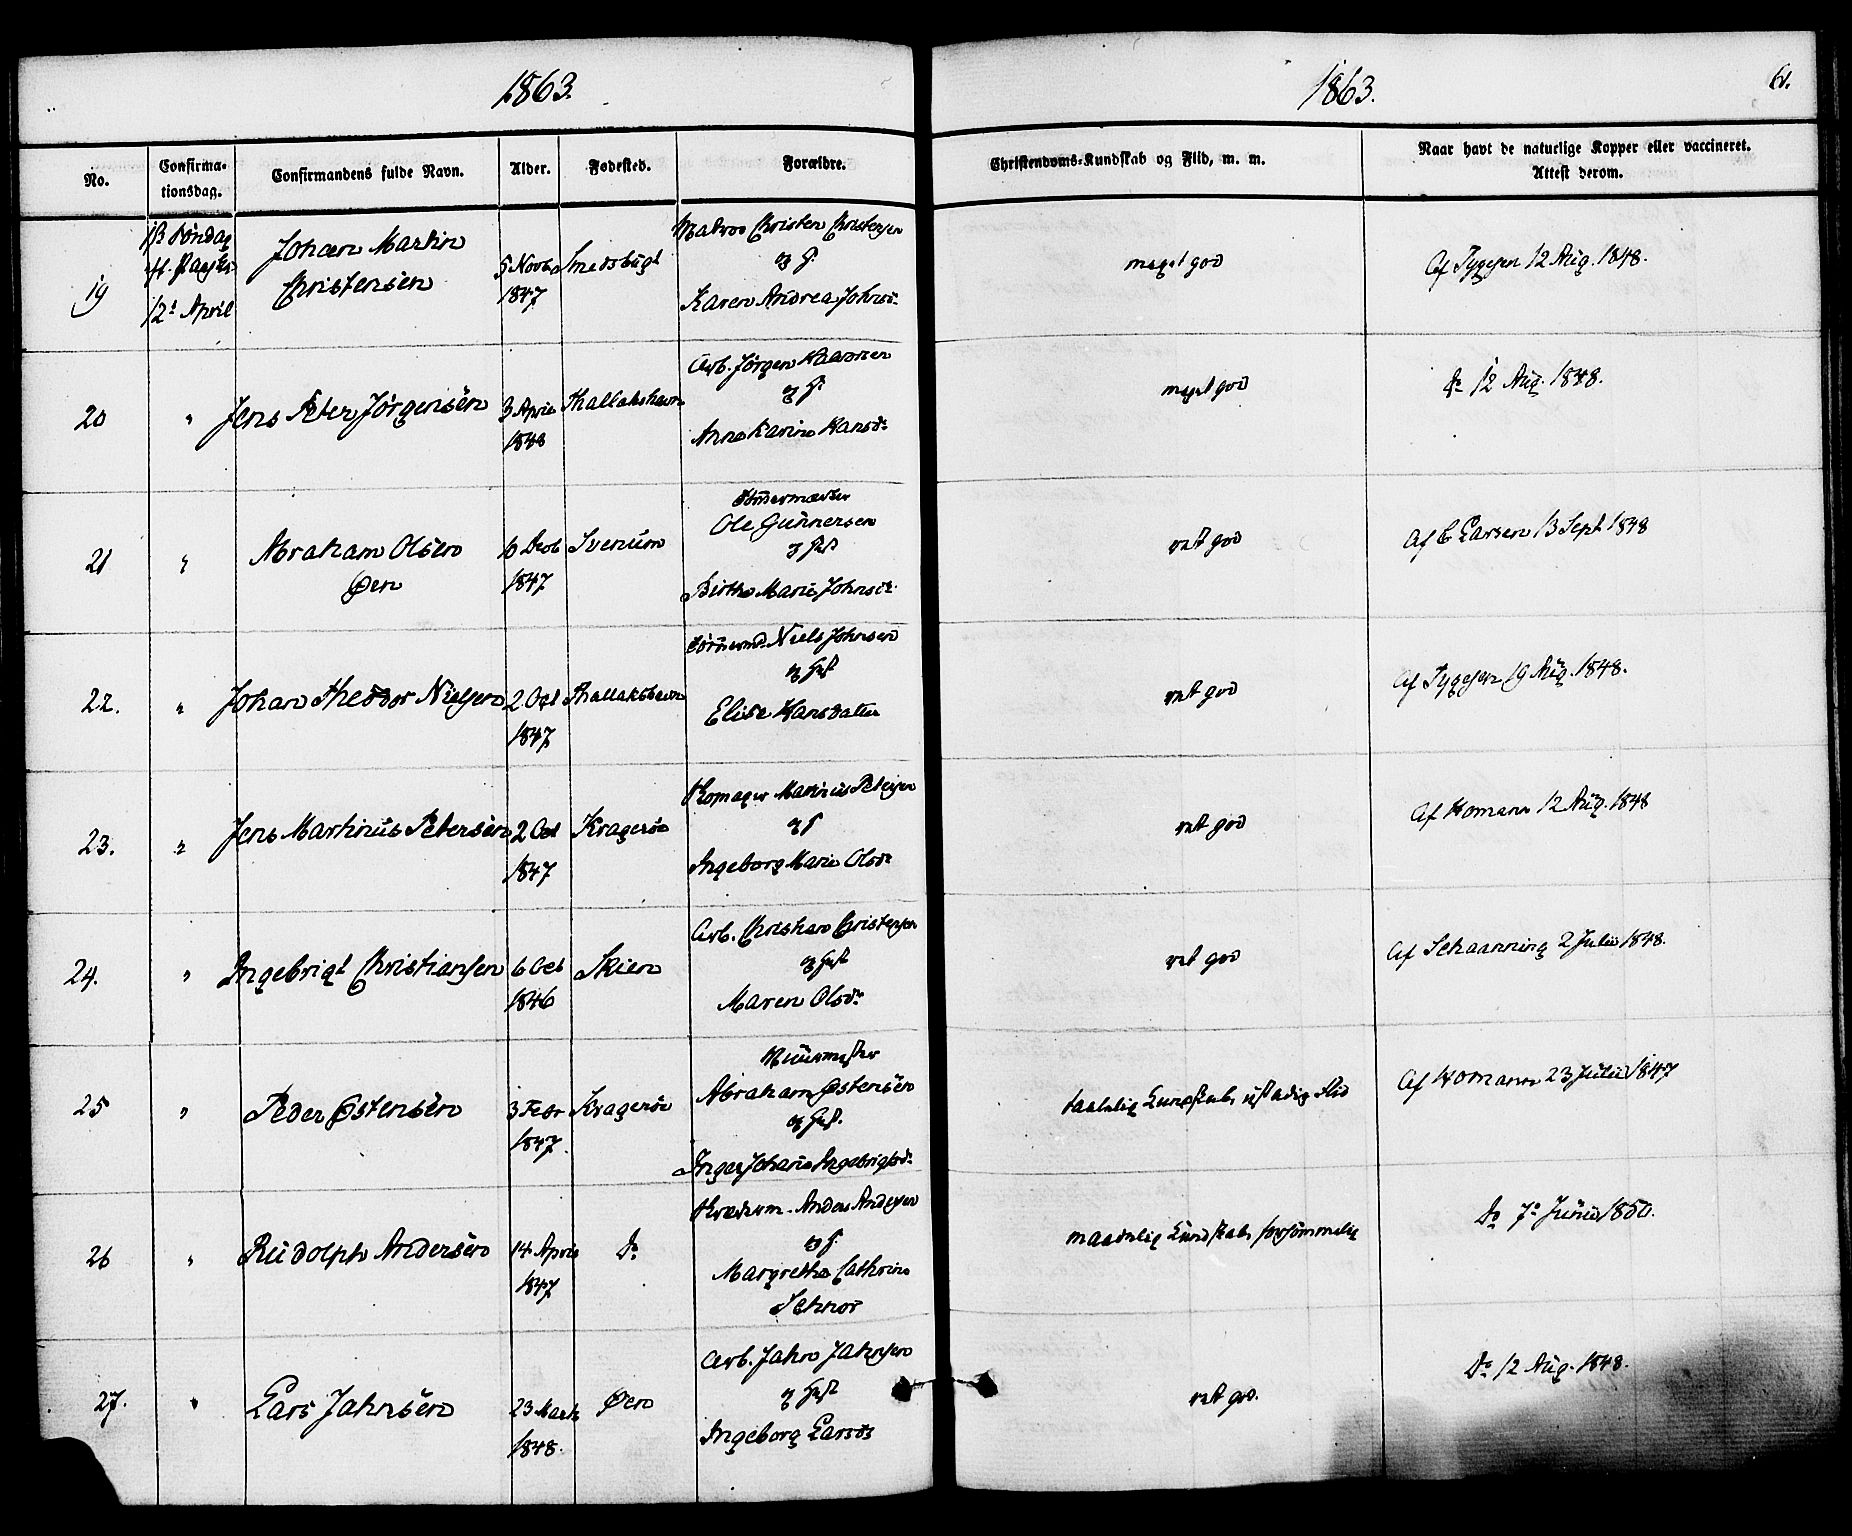 1863.
1863.
61.
No.
Confirma-
tionsdag.
Confirmandens fulde Navn.
Alder.
Fødested.
Forældre.
Christendoms-Kundskab og Flid, m. m.
Naar havt de naturlige Kopper eller vaccineret.
Attest derom.
19
1st Søndag
eft. Paaske
12te April
Johan Martin
Christensen
5 Novbr
1847
Smedsbugt
Matros Christen Christensen
og H.
Karen Andrea Johnsd.
meget god
Af Tygesen 12 Aug. 1848.
20
"
Jens Peter Jörgensen
3 April
1848
Thallakshavn
Arb. Jörgen Hansen
og H.
Anne Karine Hansdr
meget god
do 12 Aug. 1848.
21
"
Abraham Olsen
Øen
10 Decb
1847
Svenum
Tömmermester
Ole Gunnersen
og Hust
Birthe Marie Johnsdr
ret god
Af C Larsen 13 Sept 1848
22.
"
Johan Theodor Nielsen
2 Oct
1847
Thallakshavn
Tömmermd. Niels Johnsen
og Hust
Elise Hansdatter
ret god
Af Tygesen 19 Aug. 1848.
23.
"
Jens Martinus Petersen
2 Oct
1847
Krageröe
Skomager Martinus Petersen
og H
Ingeborg Marie Olsdr
ret god
Af Homann 12 Aug. 1848
24.
"
Ingebrigt Christiansen
6 Oct
1846
Skien
Arb. Christian Christensen
og Hust
Maren Olsdr
ret god
Af Schaanning 2 Julii 1848.
25
"
Peder Østensen
3 Febr
1847.
Krageröe
Muurmester
Abraham Østensen
og Hust.
Inger Johanne Ingebrigtsdr
taalelig Kundskab, ustadig Flid
Af Homann 23 Julii 1847
26
"
Rudolph Andersen
14 April
1847
do
Anders Andersen
og H.
Margrethe Cathrine
Schnor
maadelig Kundskab, forsömmelig
do 7de Junii 1850.
27.
"
Lars Jahnsen
23 Marts
1848.
Øen
Arb. Jahn Jahnsen
og Hust
Ingeborg Larsdr
ret god.
do 12 Aug. 1848.